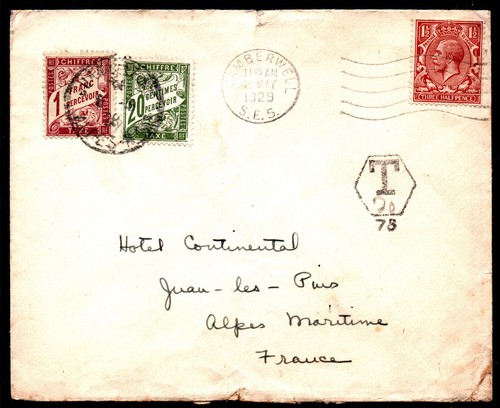 CHIFFRE
1 FRANC
A PERCEVOIR
TAXE
CHIFFRE
20 CENTIMES
A PERCEVOIR
TAXE
CAMBERWELL
11.45 AM
MAY
1929
S.E.5.
1½ 1½
THREE HALFPENCE
T
75
Hotel Continental
Juan-les-Pins
Alpes Maritime
France